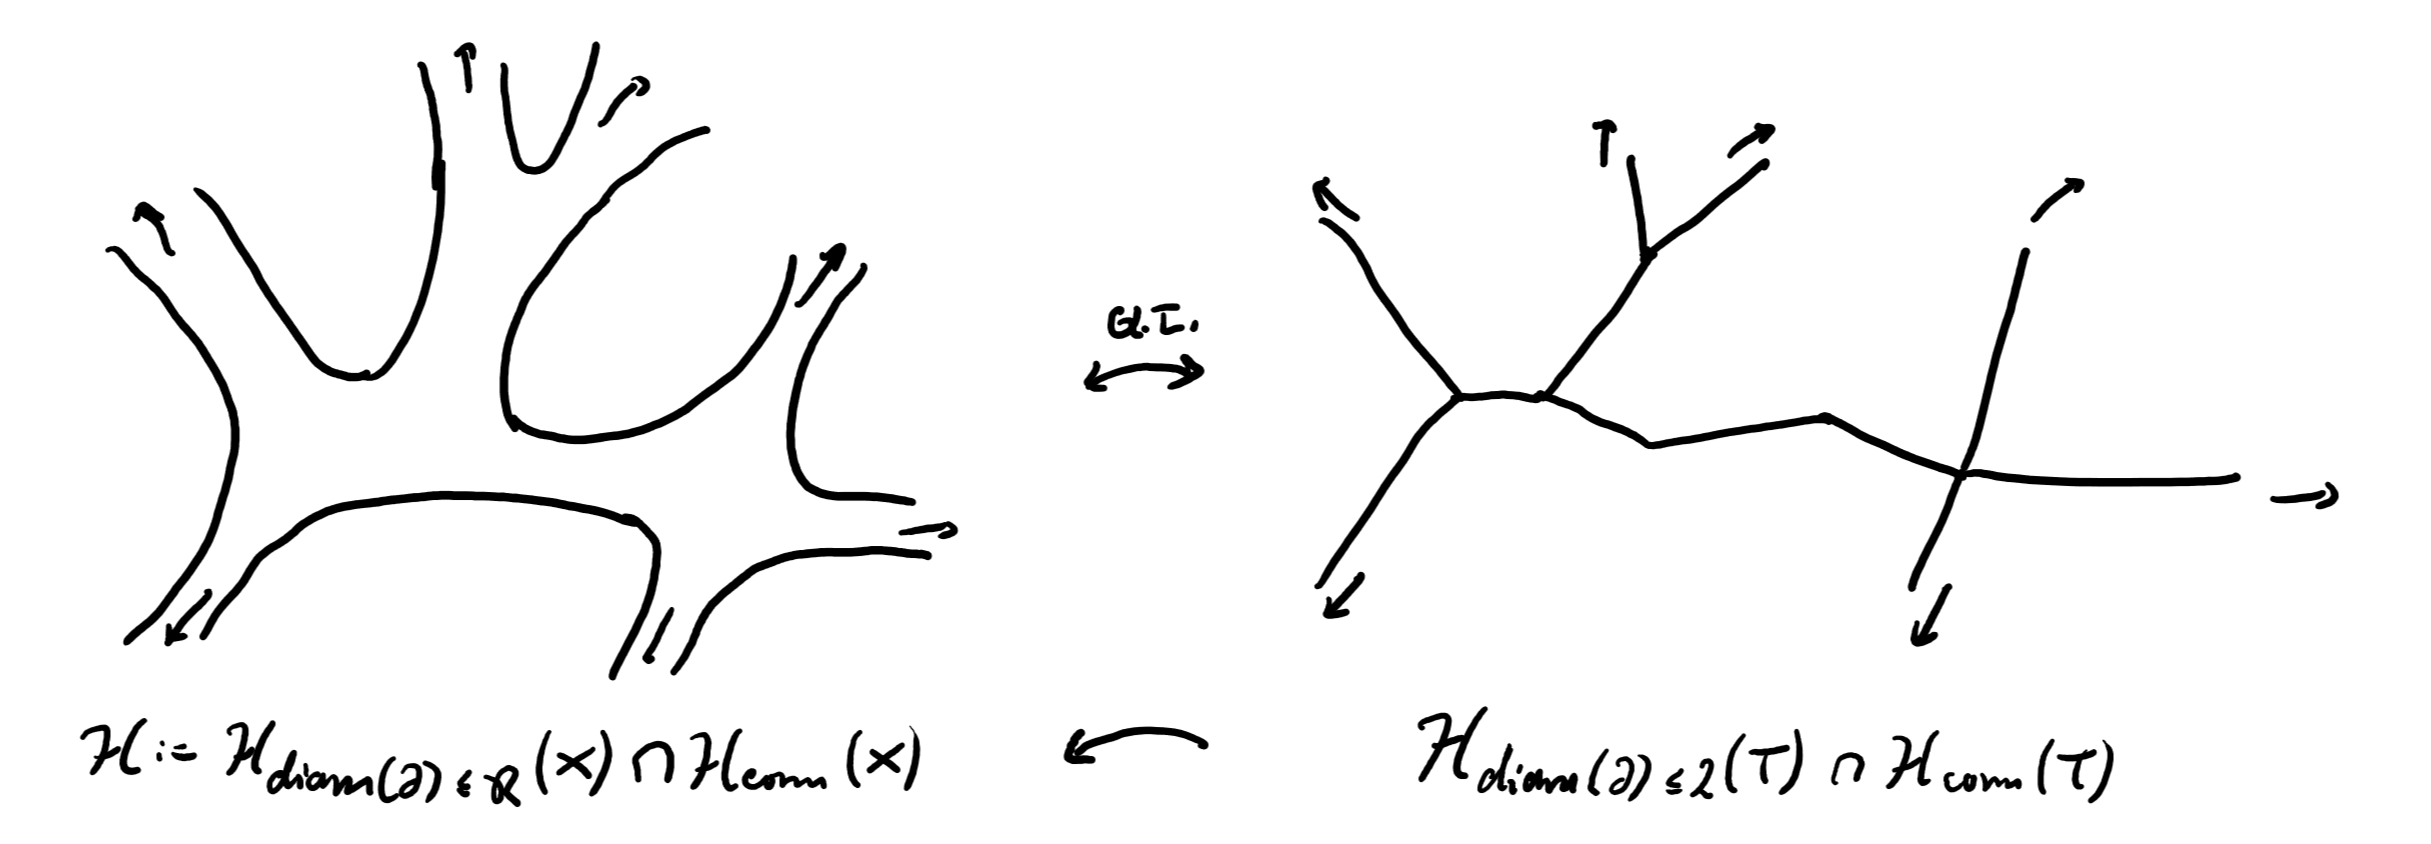 Q.I.
ℋ := ℋ_{diam(∂) ≤ R}(X) ∩ ℋ_{conn}(X) ← ℋ_{diam(∂) ≤ 2}(T) ∩ ℋ_{conn}(T)